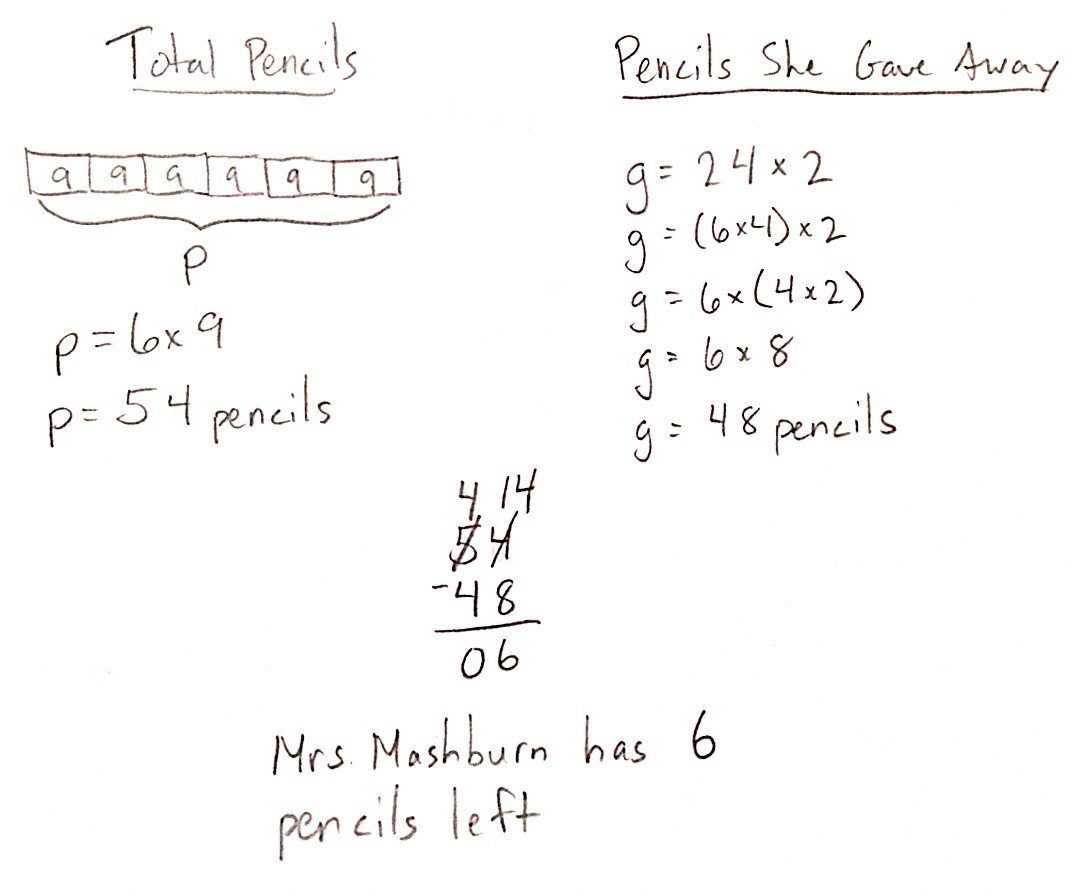 Total Pencils
9 9 9 9 9 9
p
p = 6 x 9
p = 54 pencils
Pencils She Gave Away
g = 24 x 2
g = (6x4) x 2
g = 6x(4x2)
g = 6 x 8
g = 48 pencils
4 14
54
-48
06
Mrs. Mashburn has 6
pencils left